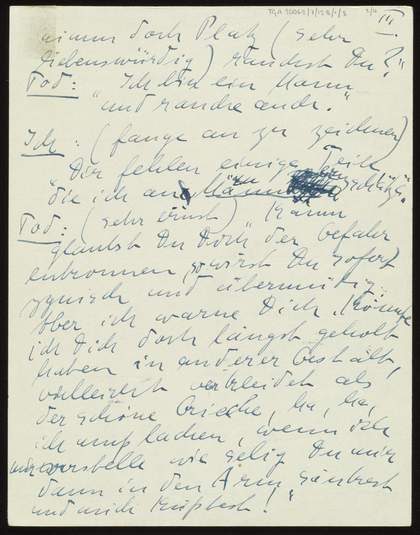 TGA 20062/3/128/1/3 3/4
III.
nimm doch Platz (sehr
liebenswürdig) rauchst Du?"
Tod: "Ich bin ein Mann
und rauche auch."
Ich: (fange an zu zeichnen)
"Dir fehlen einige Teile
die ich an Männern
Tod: (sehr ernst) Kaum
glaubst Du Dich der Gefahr
entronnen so wirst Du sofort
zynisch und übermütig.
Aber ich warne Dich. Könnte
ich Dich doch längst geholt
haben in anderer Gestalt,
vielleicht verkleidet als
der schöne Grieche, ha, ha,
ich muss lachen, wenn ich
mir vorstelle wie selig Du mir
dann in den Arm sänkest
und mich küsstest!"